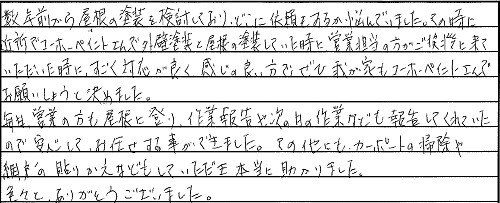 数年前から屋根の塗装を検討しており、どこに依頼するか悩んでいました。その時に
近所でユーホーペイントさんで外壁塗装と屋根の塗装していた時に営業担当の方がご挨拶に来て
いただいた時に、すごく対応が良く感じの良い方でぜひ我が家もユーホーペイントさんで
お願いしようと決めました。
毎日、営業の方も屋根に登り、作業報告や次の日の作業なども報告してくれていた
ので安心してお任せする事ができました。その他にも、カーポートの掃除や
網戸の貼りかえなどもしていただき本当に助かりました。
色々と、ありがとうございました。